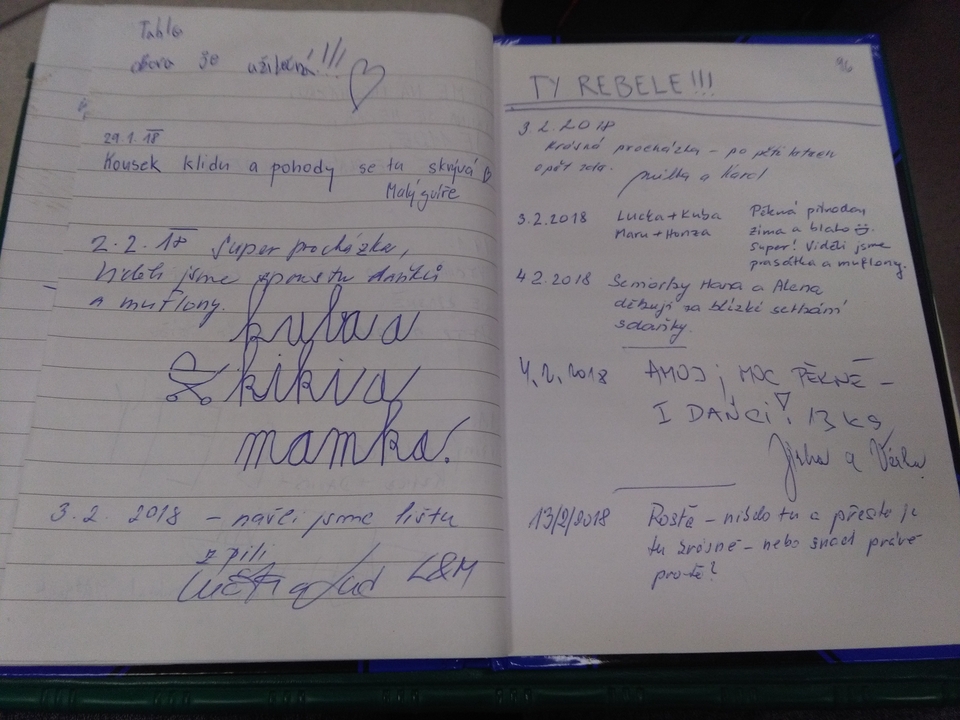 Tahle
obora je užitečná!!!
29.1.18
Kousek klidu a pohody se tu skrývá
Malý
2.2.18 Super procházka,
Viděli jsme spoustu daňků
a muflony.
kuba a
kiki a
mamka.
3.2.2018 - našli jsme lištu
z pili
L&M
96
TY REBELE!!!
3.2.2018
Krásná procházka - po pěti letech
opět zde.
a Karel
3.2.2018 Lucka + Kuba
Maru + Honza
Pěkná
zima a blato
Super! Viděli jsme
prasátka a muflony.
4.2.2018 Seniorky Hana a Alena
děkují za blízké setkání
s daňky.
4.2.2018 AHOJ, MOC PĚKNÉ -
I DAŇCI! 13 KS
Jirka a Věrka
13/2/2018 Prostě - nikdo tu a přesto je
tu krásně - nebo snad právě
proto?